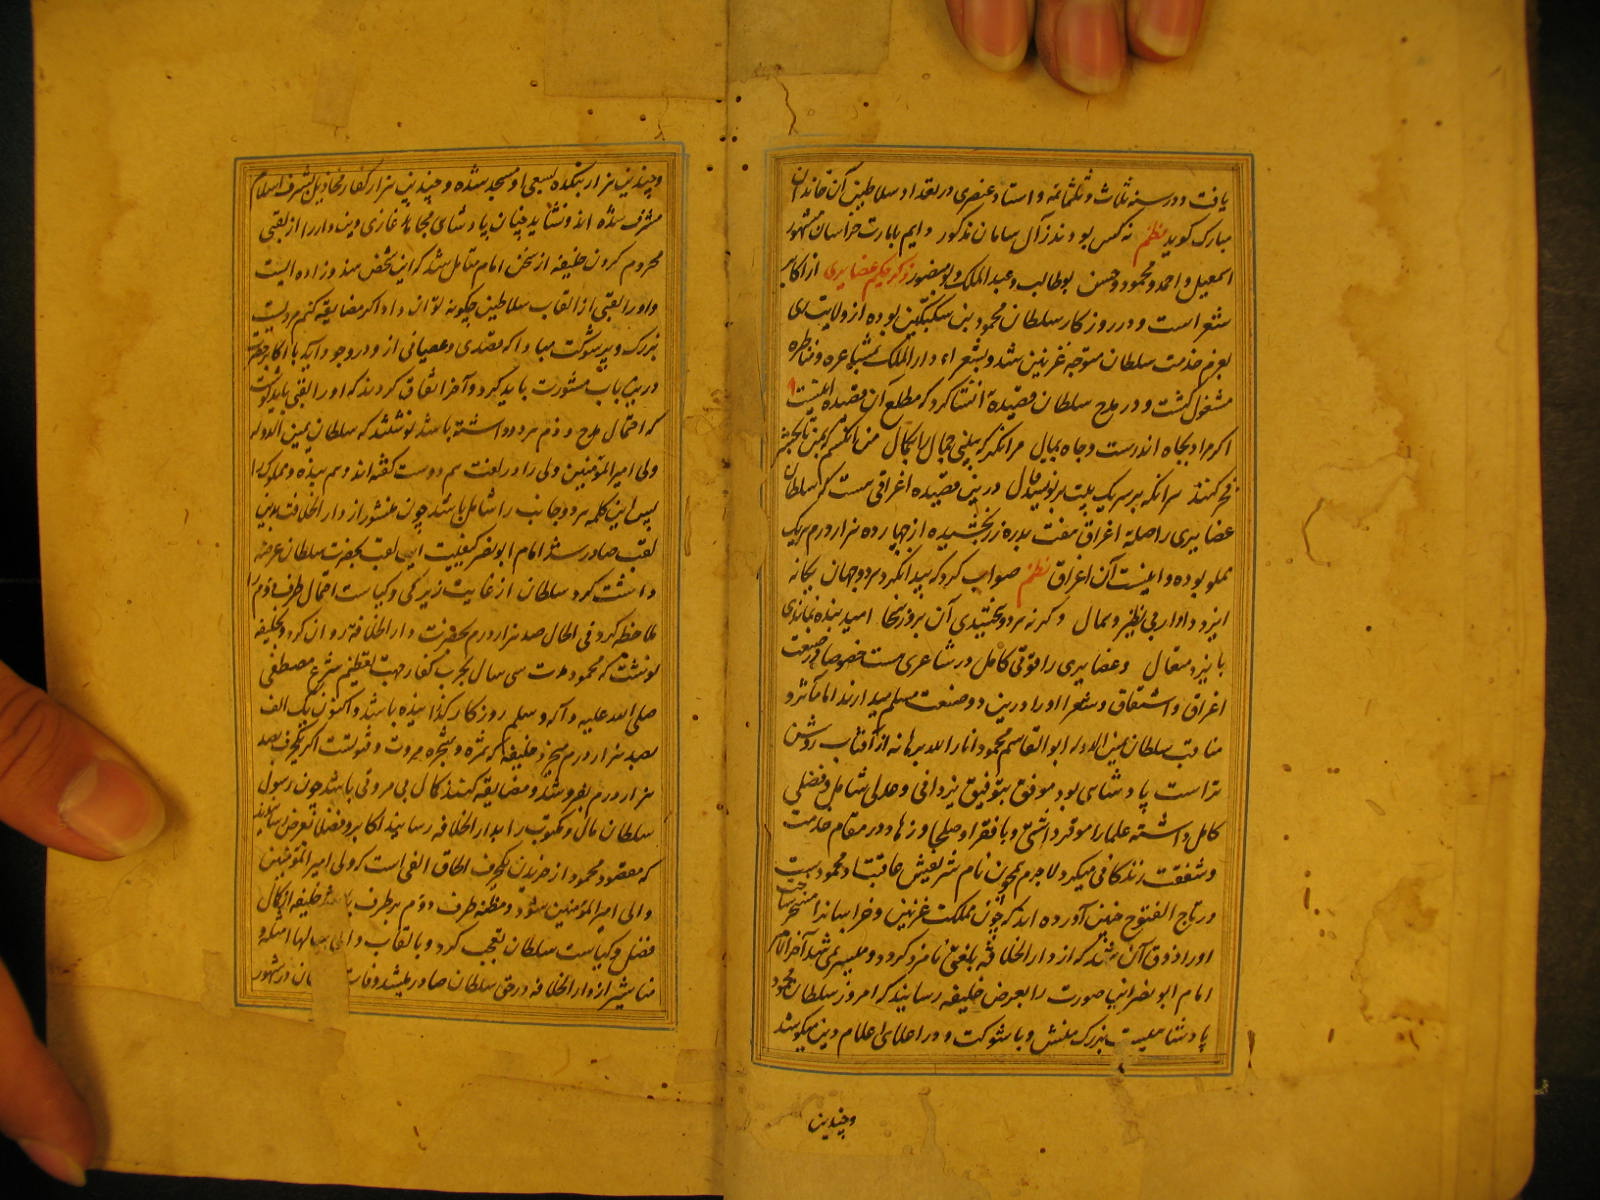 یافت و در سنه ثلاث و ثلثمائه و استاد عنصری در تعداد سلاطین آن خاندان
مبارک گوید نظم نه کس بودند ز آل سامان مذکور دایم بامارت خراسان مشهور
اسمعیل و احمد و محمود و حسن بوطالب و عبدالملک و بومنصور ذکر حکیم عضایری از اکابر
شعر است و در روزگار سلطان محمود بن سبکتکین بوده از ولایت ری
بعزم خدمت سلطان متوجه غزنین شد و بشعراء دارالملک بمشاعره و مناظره
مشغول گشت و در مدح سلطان قصیده انشا کرد که مطلع آن قصیده اینست
اکر مراد بجاه اندرست و جاه بمال مرا نگر که ببینی جمال را بکمال من آنکسم که بمن تا بحشر
فخر کند هر آنکه بر سر یک بیت بر نویسد قال درین قصیده اغراقی هست که سلطان
عضایری را صله اغراق هفت بدره زر بخشیده از چهارده هزار درم هر یک
مملو بوده و اینست آن اغراق نظم صواب کرد که پیدا نکرد هر دو جهان یکانه
ایزد دادار بی نظیر و همال و کرنه هر دو بخشیدی آن بروز سخا امید بنده نماندی
بایزد متعال و عضایری را قوتی کامل در شاعری هست خصوصا در صنعت
اغراق و اشتقاق و شعرا او را درین دو صنعت مسلم میدارند اما مآثر و
مناقب سلطان یمین الدوله ابوالقاسم محمود انار الله برهانه از آفتاب روشن
تر است پادشاهی بود موفق بتوفیق یزدانی و عدلی شامل و فضلی
کامل داشته علما را موقر داشتی و با فقرا و صلحا و زهاد در مقام خدمت
و شفقت زندکانی میکرد لا جرم همچون نام شریفش عاقبتا و محمودست
در تاج الفتوح چنین آورده اند که چون مملکت غزنین و خراسان را مسخر ساخت
او را ذوق آن شد که از دار الخلافه بلقبی نامزد کردد و میسر نمی شد آخر الامر
امام ابو نصر این صورت را بعرض خلیفه رسانید که امروز سلطان محمود
پادشاهیست بزرک منش و با شوکت و در اعلای اعلام دین میکوشد
و چندین
و چندین هزار بتکده بسعی او مسجد شده و چندین هزار کفار مخاذیل بشرف اسلام
مشرف شده اند و نشاید چنان پادشاهی مجاهد غازی دین دار را از لقبی
محروم کردن خلیفه از سخن امام متامل شد که این شخص هندو زاده ایست
و او را لقبی از القاب سلاطین چکونه توان داد اکر مضایقه کنم مردیست
بزرک و پر شوکت مبادا که قصدی و عصیانی از و در وجود آید با اکابر حضرت
درین باب مشورت باید کرد و آخر اتفاق کردند که او را لقبی باید کفت
که احتمال مدح و ذم هر دو داشته باشد نوشتند که سلطان یمین الدوله
ولی امیر المؤمنین ولی را در لغت هم دوست کفته اند و هم بنده و مملوک را
پس این کلمه هر دو جانب را شامل باشد چون منشور از دار الخلافت بدین
لقب صادر شد امام ابو نصر کیفیت این لقب بحضرت سلطان عرضه
داشت کرد سلطان از غایت زیرکی و کیاست احتمال طرف ذم را
ملاحظه کرد فی الحال صد هزار درم بحضرت دار الخلافه روان کرد و بخلیفه
نوشت که محمود مدت سی سال بحرب کفار جهت تعظیم شرع مصطفی
صلی الله علیه و آله و سلم روزکار کذرانیده باشد و اکنون یک الف
بصد هزار درم میخرد خلیفه که ثمره و شجره مروت و فتوتست اکر یکحرف بصد
هزار درم نفروشد و مضایقه کند کمال بی مروتی باشد چون رسول
سلطان مال و مکتوب را بدار الخلافه رسانید اکابر و فضلا بعرض رسانیدند
که مقصود محمود از خریدن یکحرف الحاق الفی است که ولی امیر المؤمنین
والی امیر المؤمنین شود و مظنه طرف دوم بر طرف باشد خلیفه از کمال
فضل و کیاست سلطان تعجب کرد و بالقاب والی امثله و
مناشیر از دار الخلافه در حق سلطان صادر میشد وفات در شهور